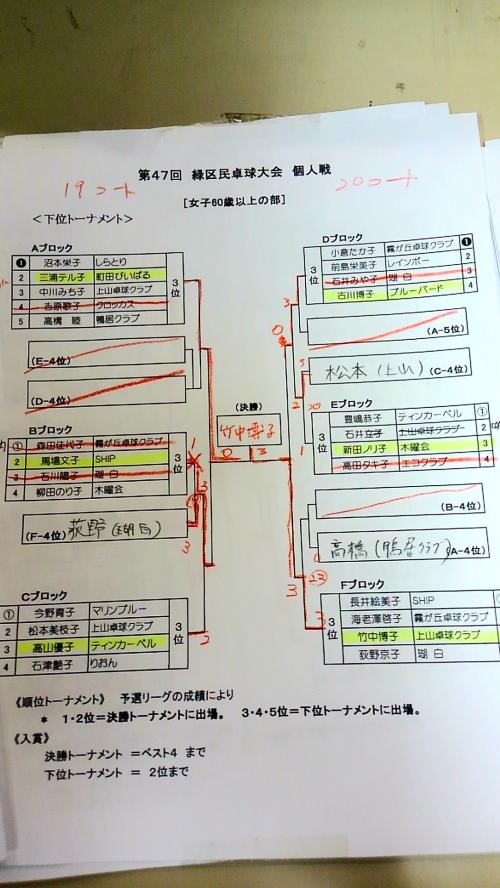 第47回 緑区民卓球大会 個人戦
19コート
20コート
[女子60歳以上の部]
<下位トーナメント>
Aブロック
❶ 沼本栄子 しらとり
2 三浦テル子 町田びいばる
3 中川みち子 上山卓球クラブ
4 吉原歌子 クロッカス
5 高橋 睦 鴨居クラブ
3位
(E-4位)
(D-4位)
Bブロック
① 森田佳代子 霧が丘卓球クラブ
2 馬場文子 SHIP
3 石川陽子 湖白
4 柳田のり子 木曜会
3位
(F-4位) 荻野(瑚白)
Cブロック
① 今野育子 マリンブルー
2 松本美枝子 上山卓球クラブ
3 高山優子 ティンカーベル
4 石津艶子 りおん
3位
(決勝)
竹中博子
0 3
Dブロック
3位
小倉たか子 霧が丘卓球クラブ ❶
前島栄美子 レインボー 2
石井みや子 湖白 3
古川博子 ブルーバード 4
(A-5位)
松本(上山) (C-4位)
Eブロック
3位
豊嶋恭子 ティンカーベル ①
石井立子 上山卓球クラブ 2
新田ノリ子 木曜会 3
高田タキ子 エコクラブ 4
(B-4位)
高橋(鴨居クラブ) (A-4位)
Fブロック
3位
長井絵美子 SHIP
海老澤啓子 霧が丘卓球クラブ
竹中博子 上山卓球クラブ
荻野京子 瑚白
《順位トーナメント》 予選リーグの成績により
* 1・2位=決勝トーナメントに出場。 3・4・5位=下位トーナメントに出場。
《入賞》
決勝トーナメント =ベスト4 まで
下位トーナメント = 2位まで